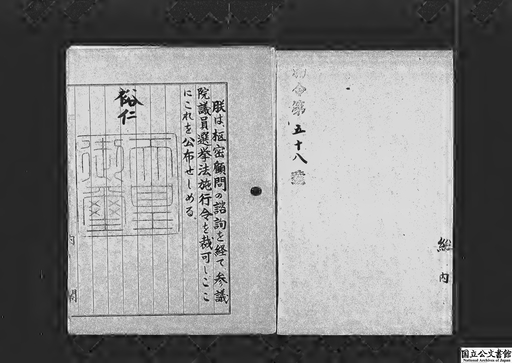 勅令第五十八號
総内
朕は枢密顧問の諮詢を経て参議
院議員選挙法施行令を裁可しここ
にこれを公布せしめる
裕仁
天皇
御璽
内閣
国立公文書館
National Archives of Japan